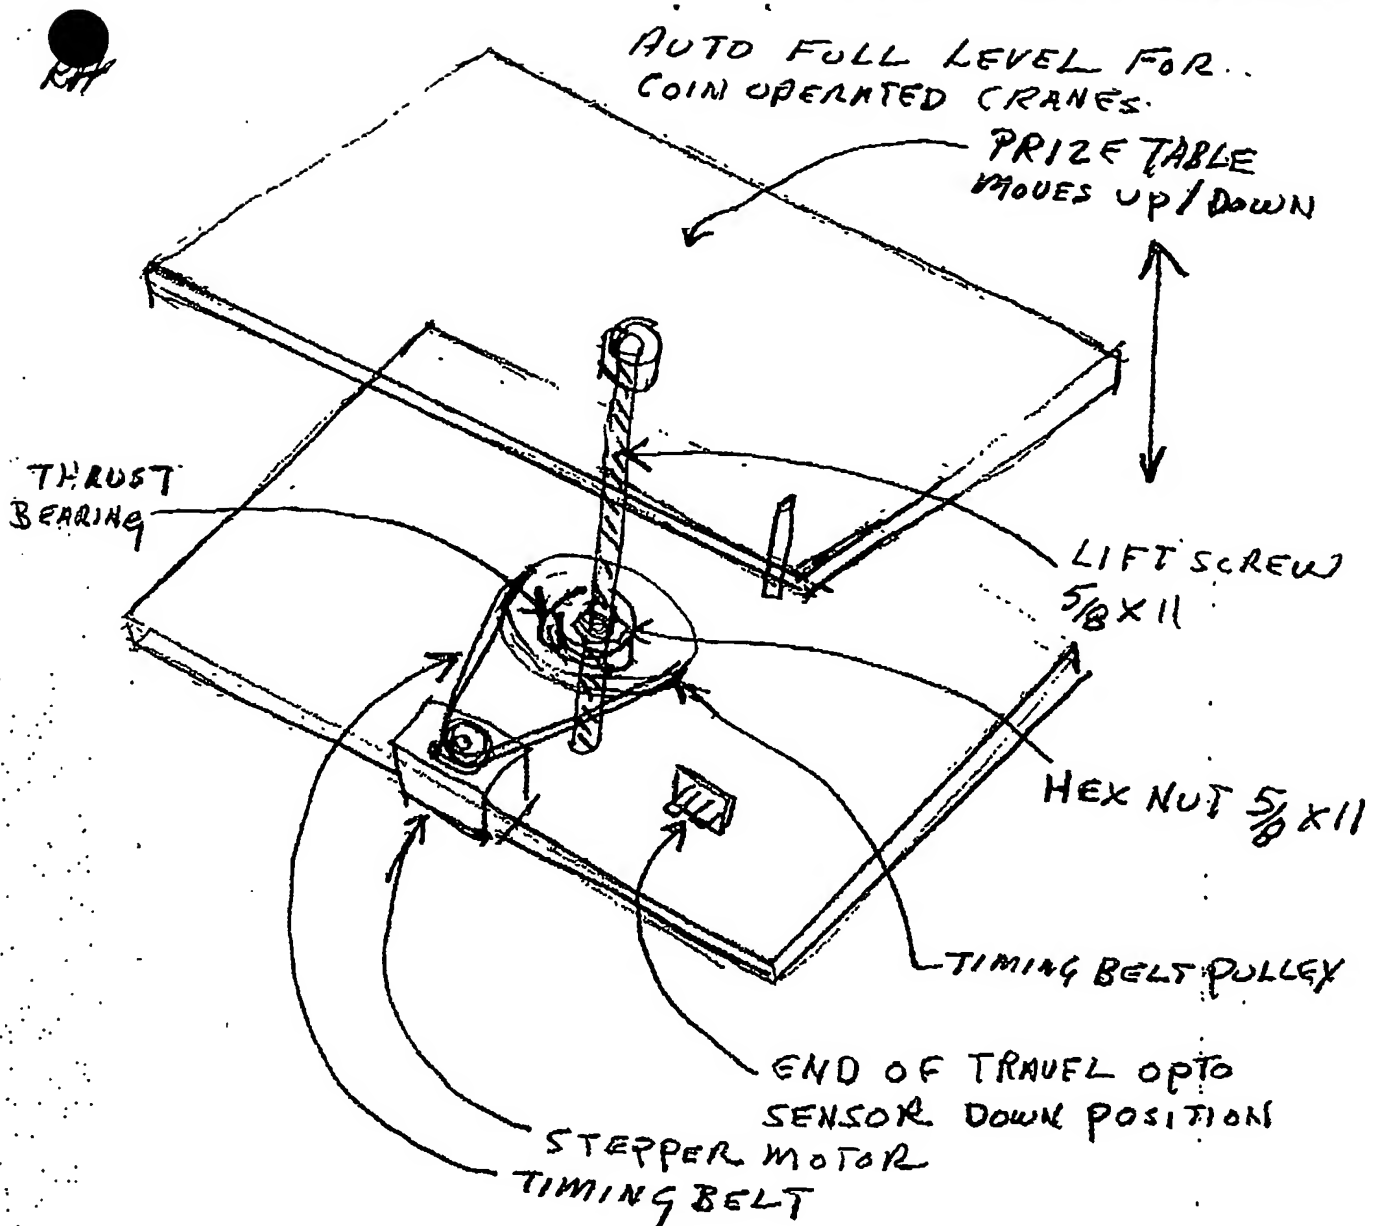 AUTO FULL LEVEL FOR..
COIN OPERATED CRANES.
PRIZE TABLE
MOVES UP/DOWN
THRUST
BEARING
LIFT SCREW
5/8 X 11
HEX NUT 5/8 X 11
TIMING BELT PULLEY
END OF TRAVEL OPTO
SENSOR DOWN POSITION
STEPPER MOTOR
TIMING BELT